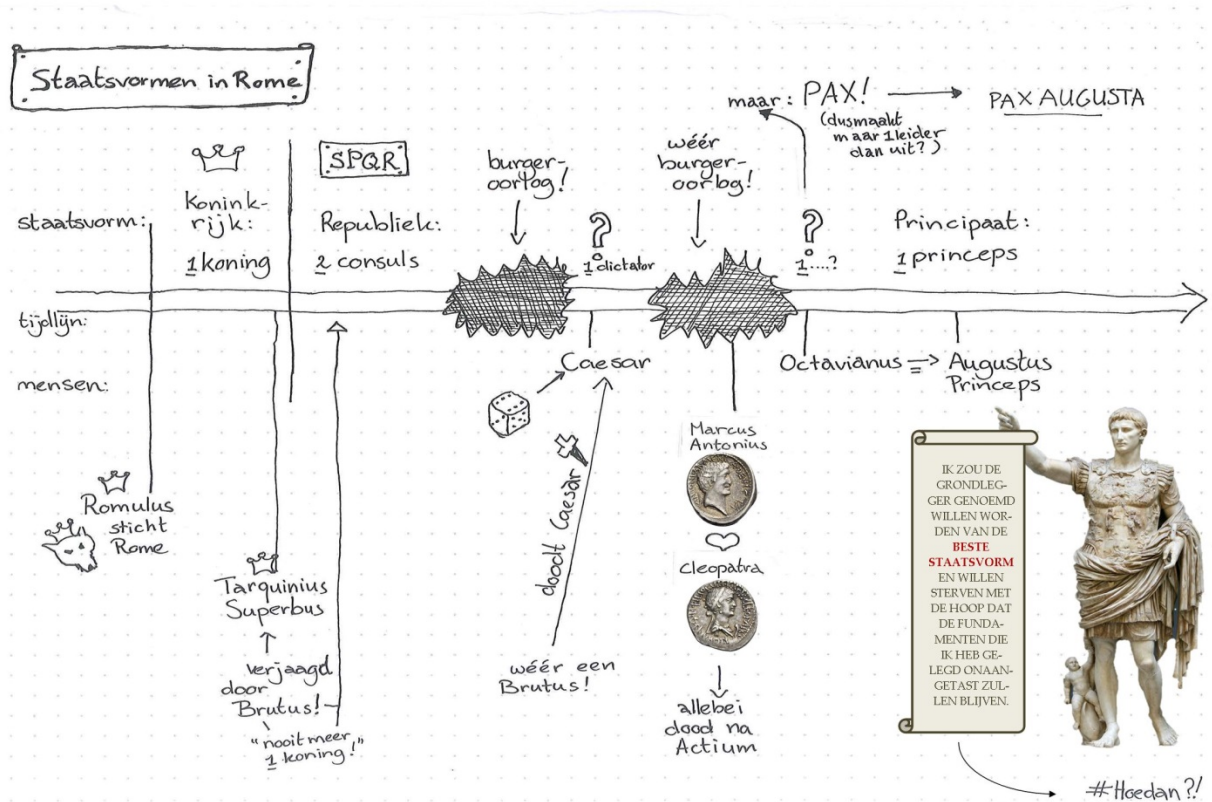 Staatsvormen in Rome
maar: PAX!
PAX AUGUSTA
(dus maakt
maar 1 leider
dan uit?)
staatsvorm:
Konink-
rijk:
1 koning
SPQR
Republiek:
2 consuls
burger-
oorlog!
?
1 dictator
wéér
burger-
oorlog!
?
1....?
Principaat:
1 princeps
tijdlijn:
mensen:
Romulus
sticht
Rome
Tarquinius
Superbus
verjaagd
door
Brutus!
"nooit meer
1 koning!"
Caesar
doodt Caesar
wéér een
Brutus!
Marcus
Antonius
Cleopatra
allebei
dood na
Actium
Octavianus => Augustus
Princeps
IK ZOU DE
GRONDLEG-
GER GENOEMD
WILLEN WOR-
DEN VAN DE
BESTE
STAATSVORM
EN WILLEN
STERVEN MET
DE HOOP DAT
DE FUNDA-
MENTEN DIE
IK HEB GE-
LEGD ONAAN-
GETAST ZUL-
LEN BLIJVEN.
#Hoedan?!